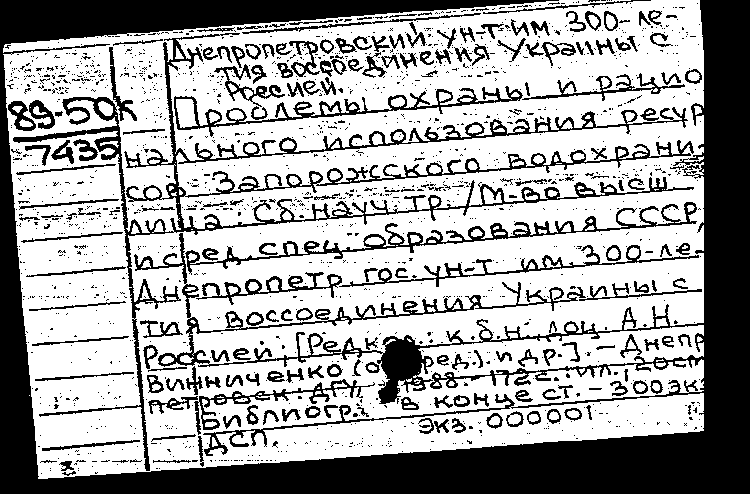 Днепропетровский ун-т им. 300-ле-
тия воссоединения Украины с
Россией.
89-50к
7435
Проблемы охраны и рацио
нального использования ресур
сов Запорожского водохрани-
лища: Сб. науч. тр. / М-во высш
и сред. спец. образования СССР,
Днепропетр. гос. ун-т им. 300-ле-
тия воссоединения Украины с
Россией; [Редкол.: к.б.н., доц. А.Н.
Винниченко (отв. ред.) и др.]. - Днепр
петровск: ДГУ, 1988. - 172 с.: ил.; 20см
Библиогр. в конце ст. - 300 экз
ДСП. Экз. 000001